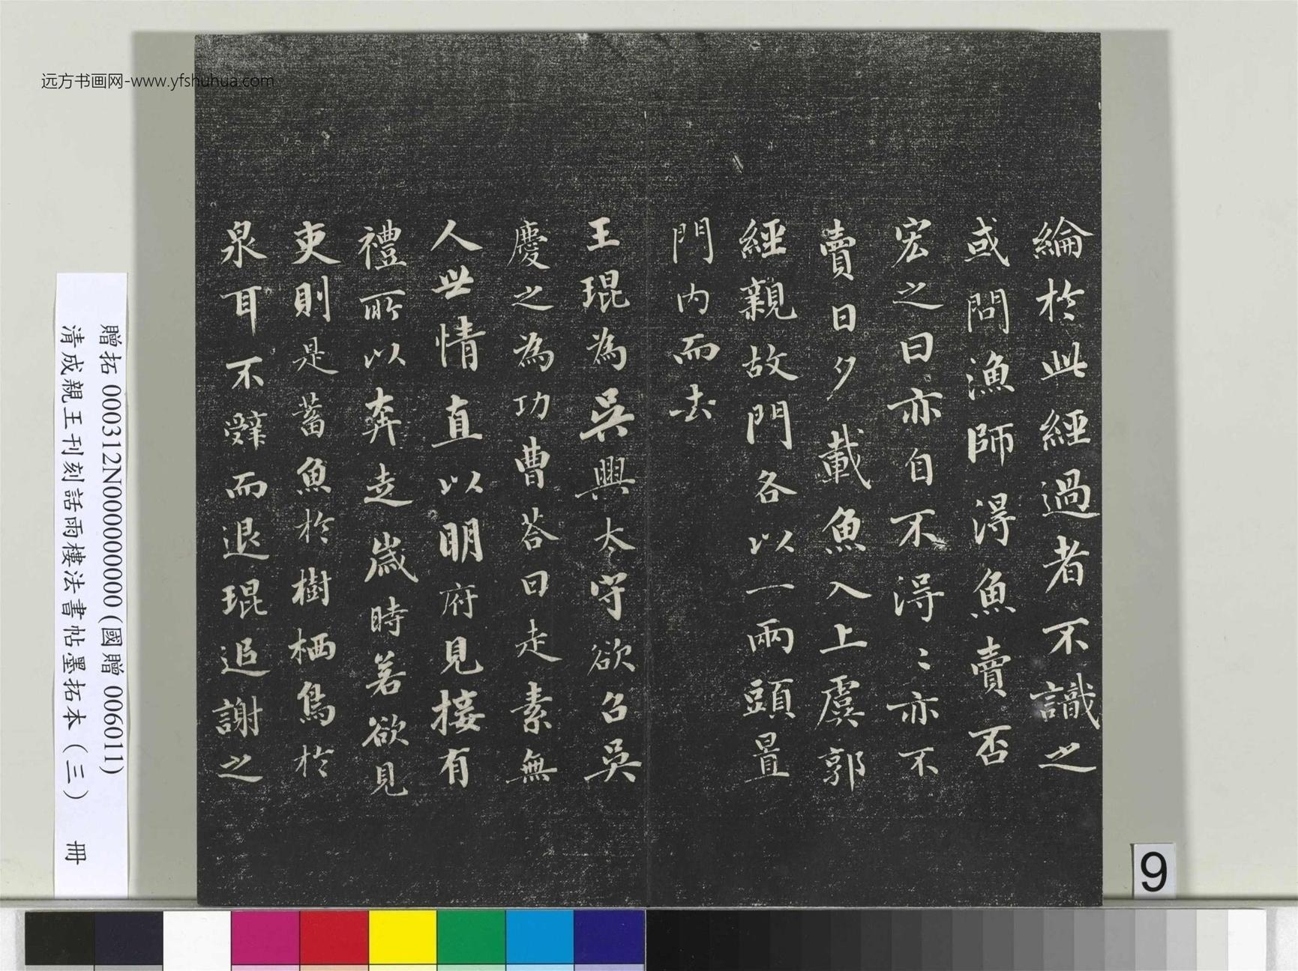 远方书画网-www.yfshuhua.com
綸於此經過者不識之
或問漁師得魚賣否
宏之曰亦自不得〻亦不
賣日夕載魚入上虞郭
經親故門各以一兩頭置
門内而去
王琨為吳興太守欲召吳
慶之為功曹荅曰走素無
人世情直以明府見接有
禮所以奔走歲時若欲見
吏則是蓄魚於樹栖鳥於
泉耳不辤而退琨追謝之
贈拓 000312N000000000(國贈 006011)
清成親王刊刻話雨樓法書帖墨拓本(三) 冊
9